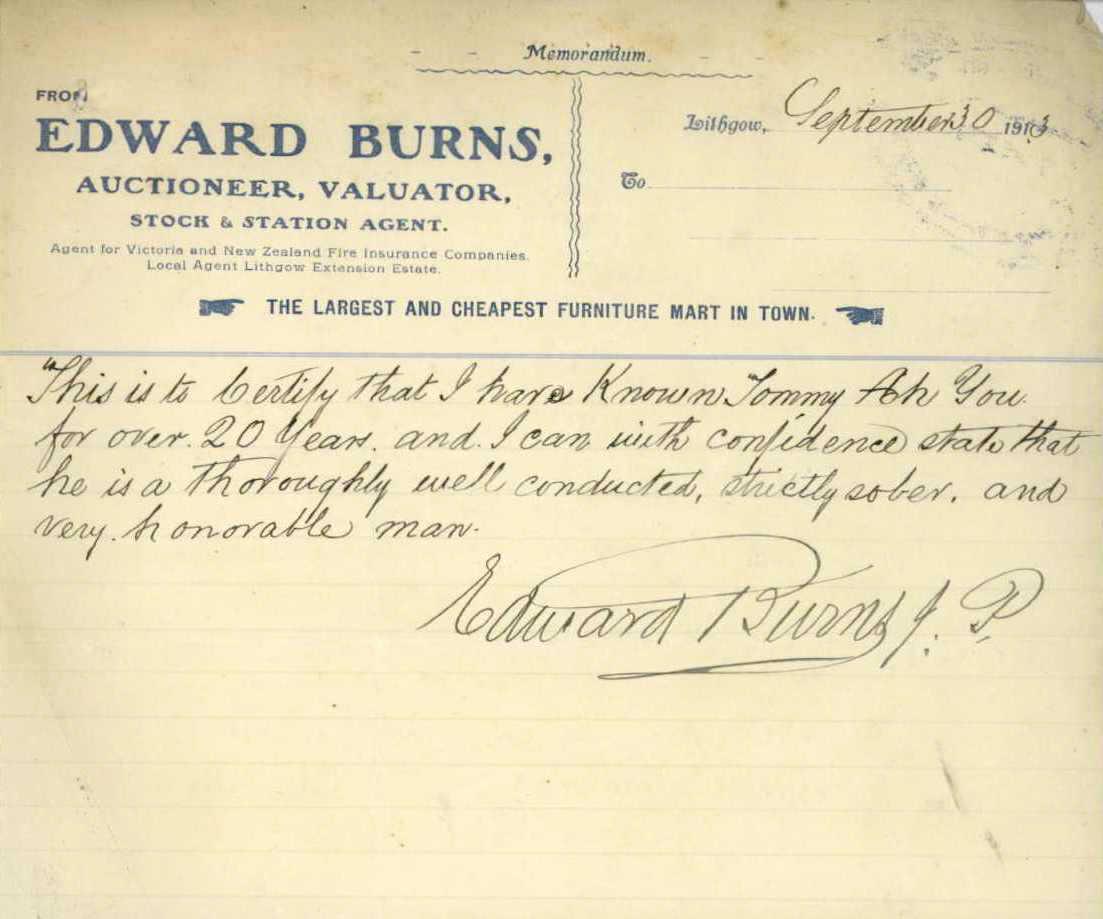 Memorandum.
FROM
EDWARD BURNS,
AUCTIONEER, VALUATOR,
STOCK & STATION AGENT.
Agent for Victoria and New Zealand Fire Insurance Companies.
Local Agent Lithgow Extension Estate.
Lithgow, September 30 1913
To
THE LARGEST AND CHEAPEST FURNITURE MART IN TOWN.
This is to Certify that I have Known Tommy Ah You
for over. 20 Years. and. I can with confidence state that
he is a thoroughly well conducted, strictly sober. and
very. honorable man.
Edward Burns J. P.